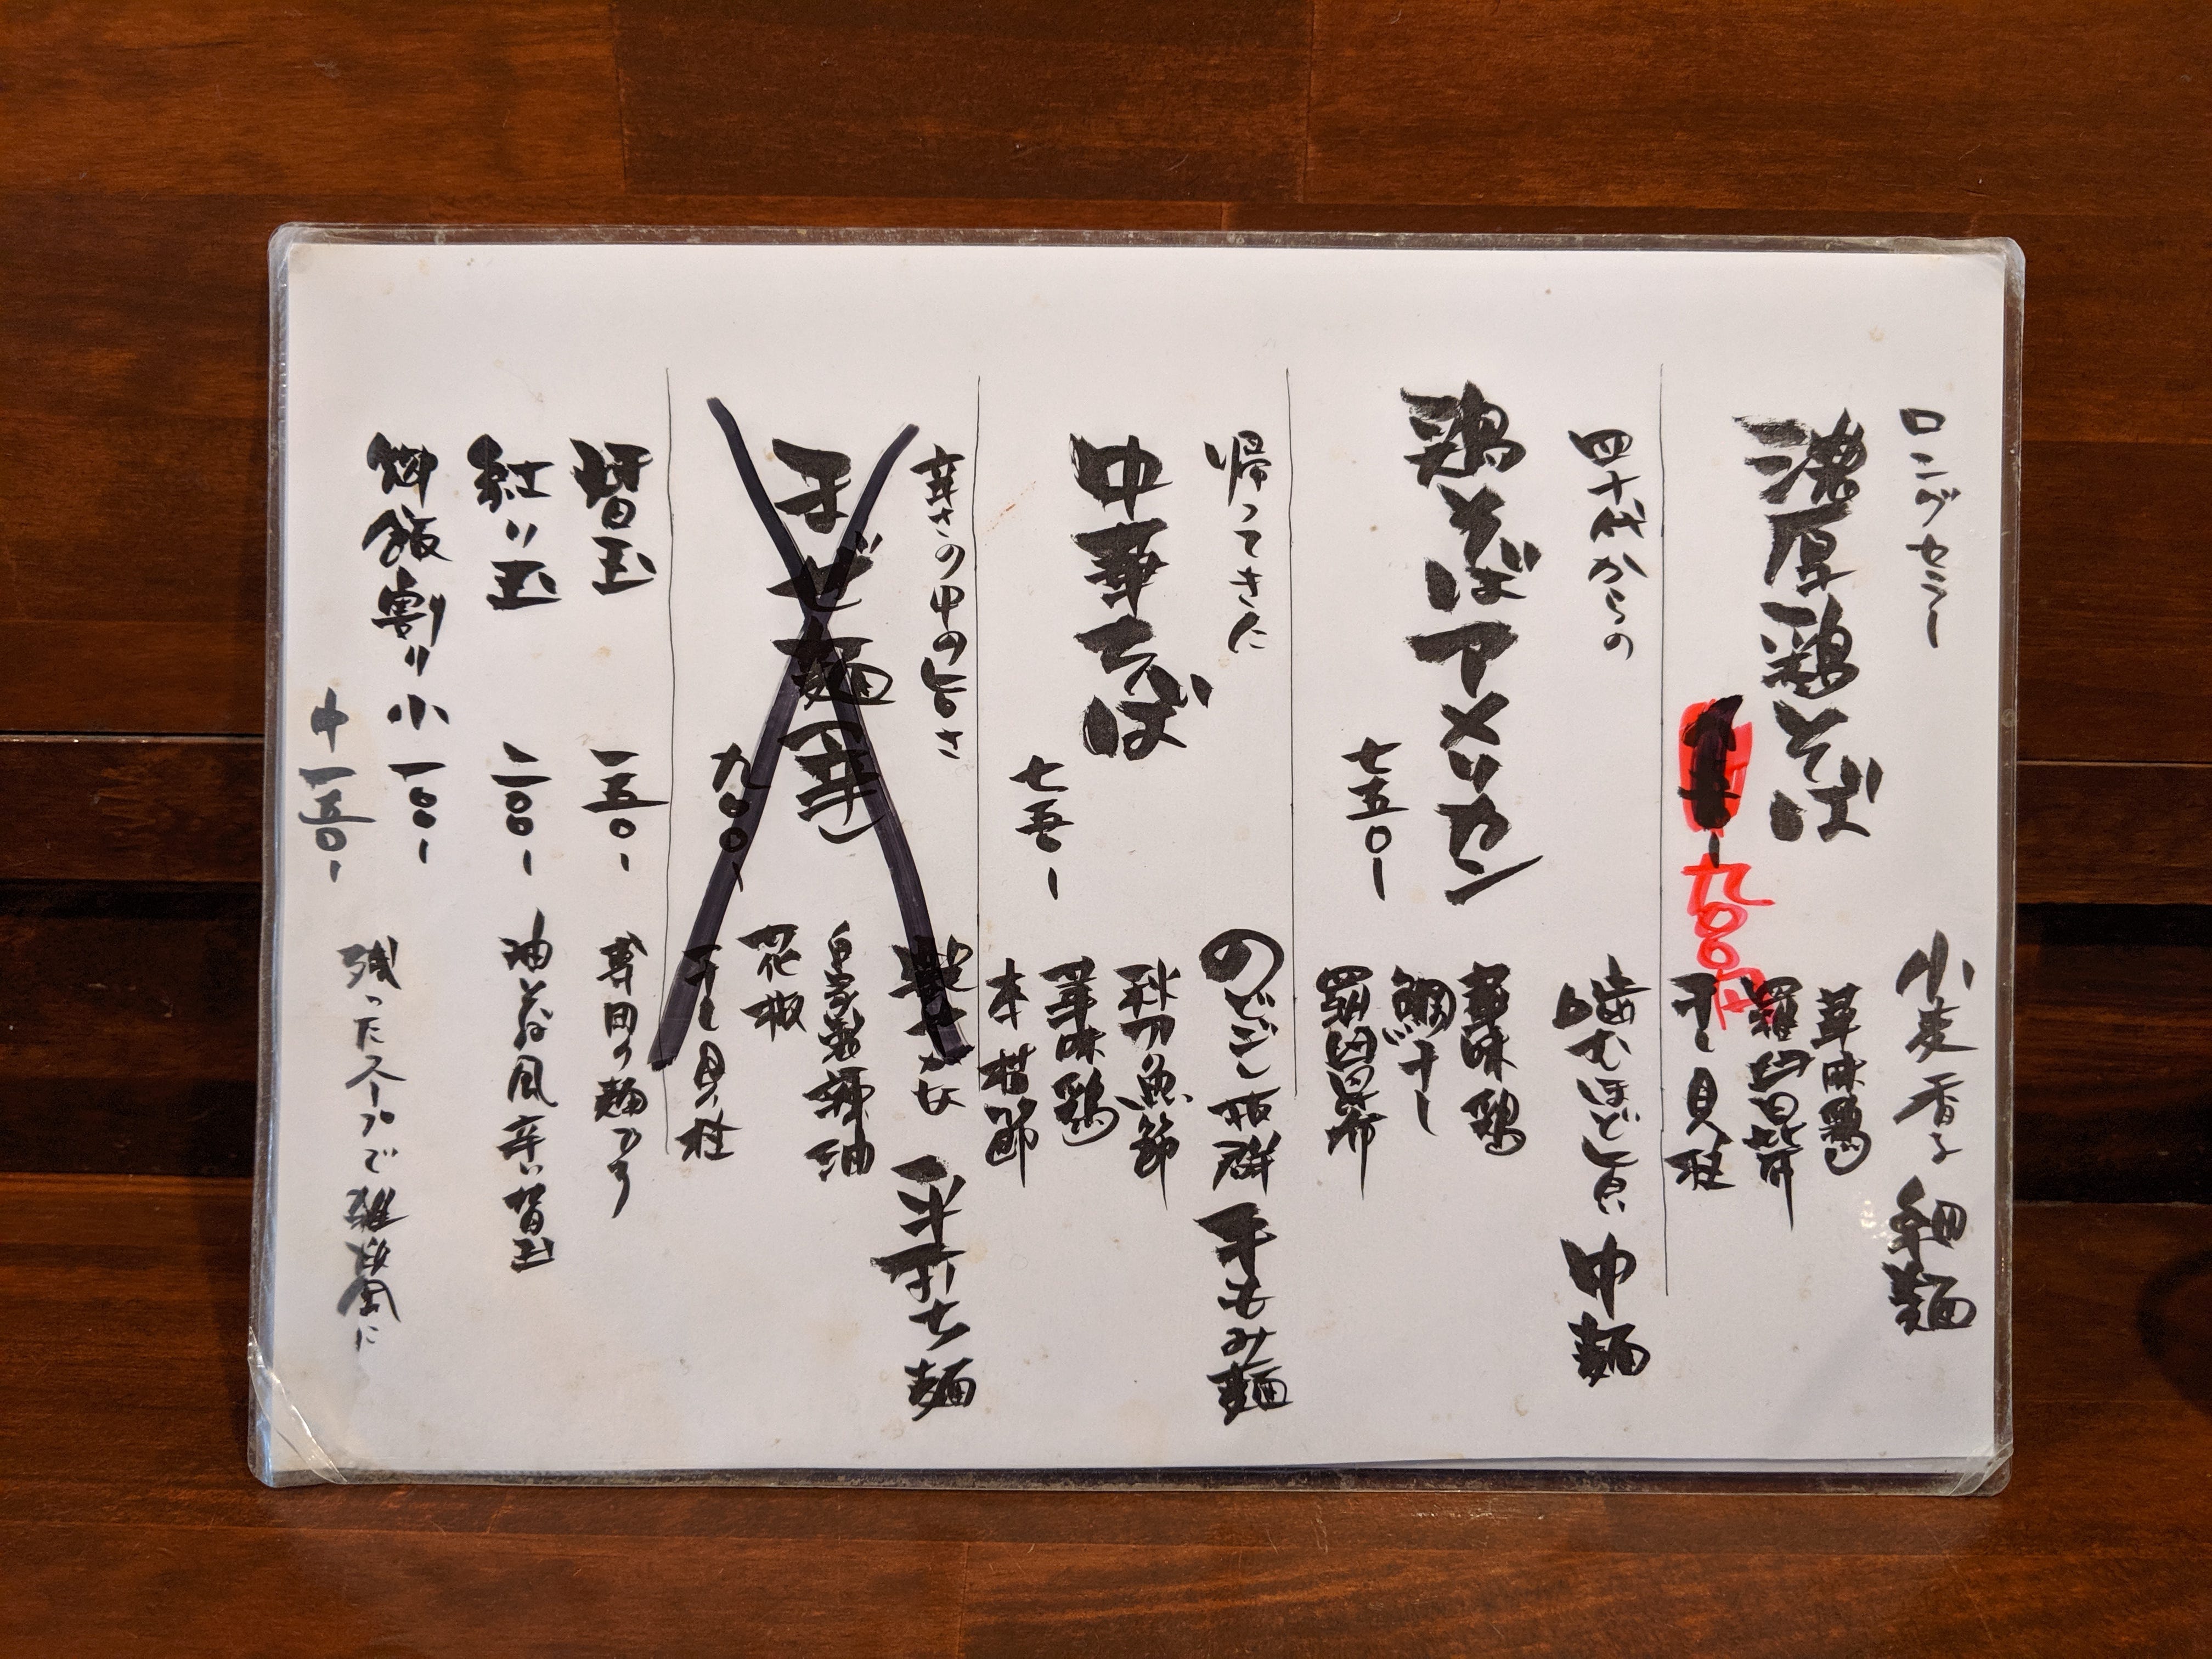 ロングセラー
濃厚鶏そば
九〇〇円
小麦香る 細麺
華味鶏
羅臼昆布
干し貝柱
四十代からの
鶏そばアメリカン
七五〇ー
噛むほど旨い 中麺
華味鶏
鯛干し
羅臼昆布
帰ってきた
中華そば
七五〇ー
のどごし抜群 手もみ麺
秋刀魚節
華味鶏
本枯節
辛さの中の旨さ
まぜ麺 辛
九〇〇ー
豊かな 平打ち麺
自家製辣油
花椒
干し貝柱
替玉 一五〇ー 専用の麺です
紅り玉 二〇〇ー 油そば風辛い替玉
御飯割り 小 一〇〇ー 残ったスープで雑炊風に
中 一五〇ー